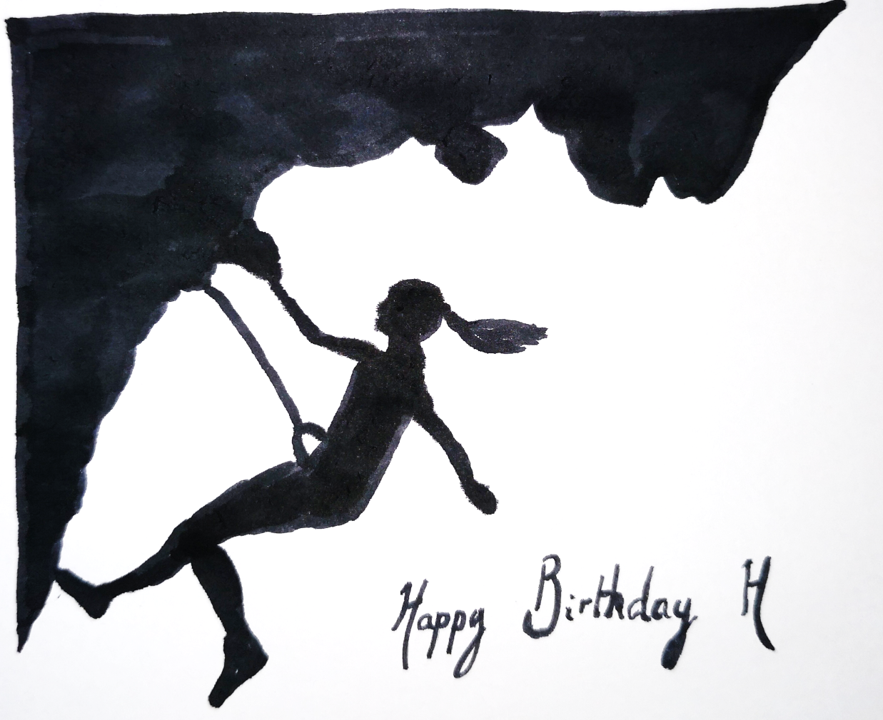 Happy Birthday H